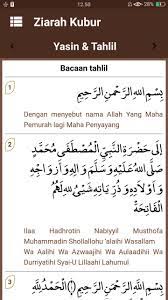 12.50
Ziarah Kubur
Yasin & Tahlil
Bacaan tahlil
1
بِسْمِ اللهِ الرَّحْمٰنِ الرَّحِيْمِ
Dengan menyebut nama Allah Yang Maha
Pemurah lagi Maha Penyayang
2
إِلَى حَضْرَةِ النَّبِيِّ الْمُصْطَفَى مُحَمَّدٍ
صَلَّى اللهُ عَلَيْهِ وَسَلَّمَ وَآلِهِ وَأَزْوَاجِهِ
وَأَوْلَادِهِ وَذُرِّيَّاتِهِ شَيْءٌ لِلّٰهِ لَهُمُ الْفَاتِحَةُ
Ilaa Hadrotin Nabiyyil Musthofa
Muhammadin Shollollohu 'alaihi Wasallam
Wa Aalihi Wa Azwaajihi Wa Aulaadihi Wa
Durriyatihi Syai-U Lillaahi Lahumul
3
بِسْمِ اللهِ الرَّحْمٰنِ الرَّحِيْمِ